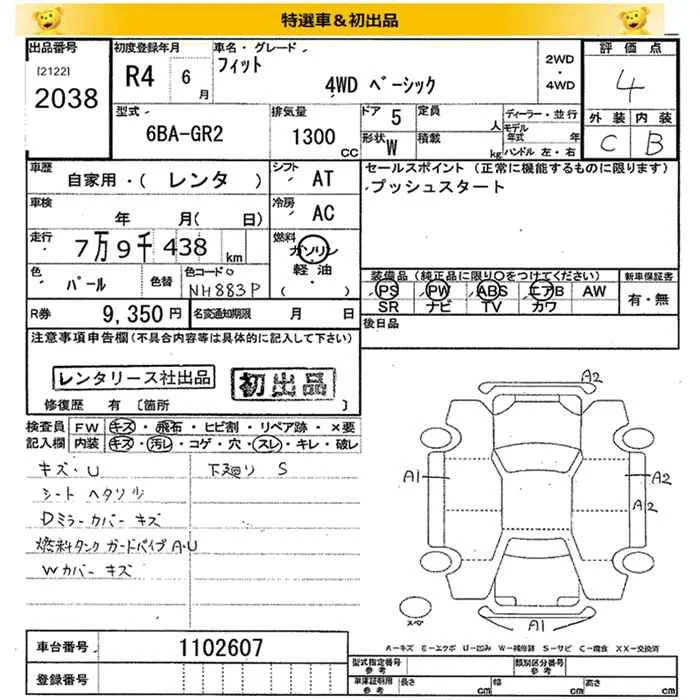 特選車&初出品
出品番号
[2122]
2038
初度登録年月
R4 6月
車名・グレード
フィット
4WD ベーシック
2WD・4WD
評価点
4
外装 内装
C B
型式
6BA-GR2
排気量
1300 CC
ドア 5
定員 人
形状 W
積載 kg
ディーラー・並行
モデル年式 年
ハンドル 左・右
車歴
自家用・( レンタ )
シフト
AT
セールスポイント (正常に機能するものに限ります)
プッシュスタート
車検
年 月( 日)
冷房
AC
走行
7万9千438 km
燃料
ガソリン
軽油
・( )
色
パール
色替
色コードNo
NH883P
装備品 (純正品に限り○をつけてください)
新車保証書
PS PW ABS エアB AW
SR ナビ TV カワ
有・無
R券
9,350円
名変通知期限 月 日
後日品
注意事項申告欄(不具合内容等は具体的に記入して下さい)
レンタリース社出品
初出品
修復歴 有 〔箇所 〕
検査員記入欄
FW キズ・飛石・ヒビ割・リペア跡・×要
内装 キズ・汚レ・コゲ・穴・スレ・キレ・破レ
キズ・U
下廻り S
シート ヘタリ少
Dミラーカバー キズ
燃料タンク ガードパイプ A・U
Wカバー キズ
A2
A1
A2
A2
A1
スペア
A-キズ E-エクボ U-凹み W-補修跡 S-サビ C-腐食 XX-交換済
車台番号
1102607
登録番号
型式指定番号 参考
類別区分番号 参考
車庫証明用 参考
長さ cm
幅 cm
高さ cm